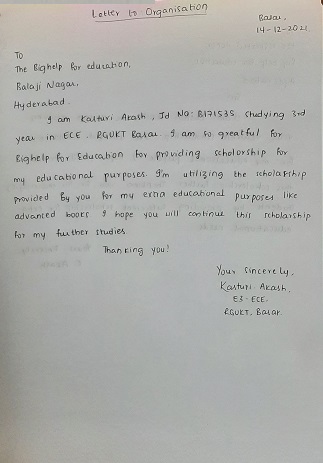 Letter to Organisation
Basar,
14-12-2021
To
The Bighelp for education,
Balaji Nagar,
Hyderabad.
I am Kasturi Akash, Id NO: B171535 studying 3rd
year in ECE. RGUKT Basar. I am so greatful for
Bighelp for Education for providing scholorship for
my educational purposes. I'm utilizing the scholarship
provided by you for my extra educational purposes like
advanced books I hope you will continue this scholarship
for my further studies.
Thanking you!
Your Sincerely,
Kasturi Akash,
E3-ECE.
RGUKT, Basar.